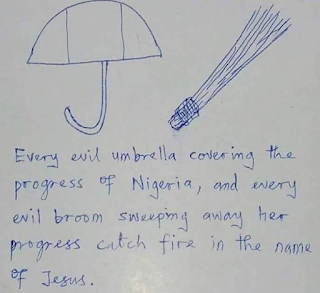 Every evil umbrella covering the
progress of Nigeria, and every
evil broom sweeping away her
progress catch fire in the name
of Jesus.